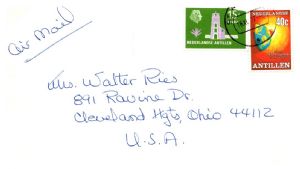 air Mail
15 c
NEDERLANDSE ANTILLEN
NEDERLANDSE
40c
ANTILLEN
Mrs. Walter Ries
891 Ravine Dr.
Cleveland Hgts, Ohio 44112
U.S.A.